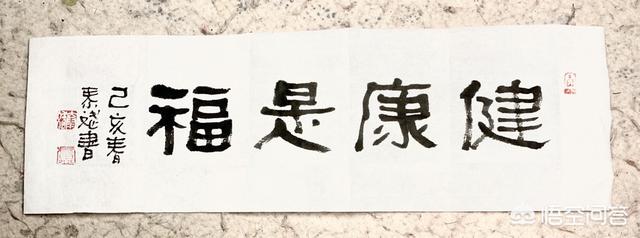 健康是福
己亥春
果斌書
悟空问答